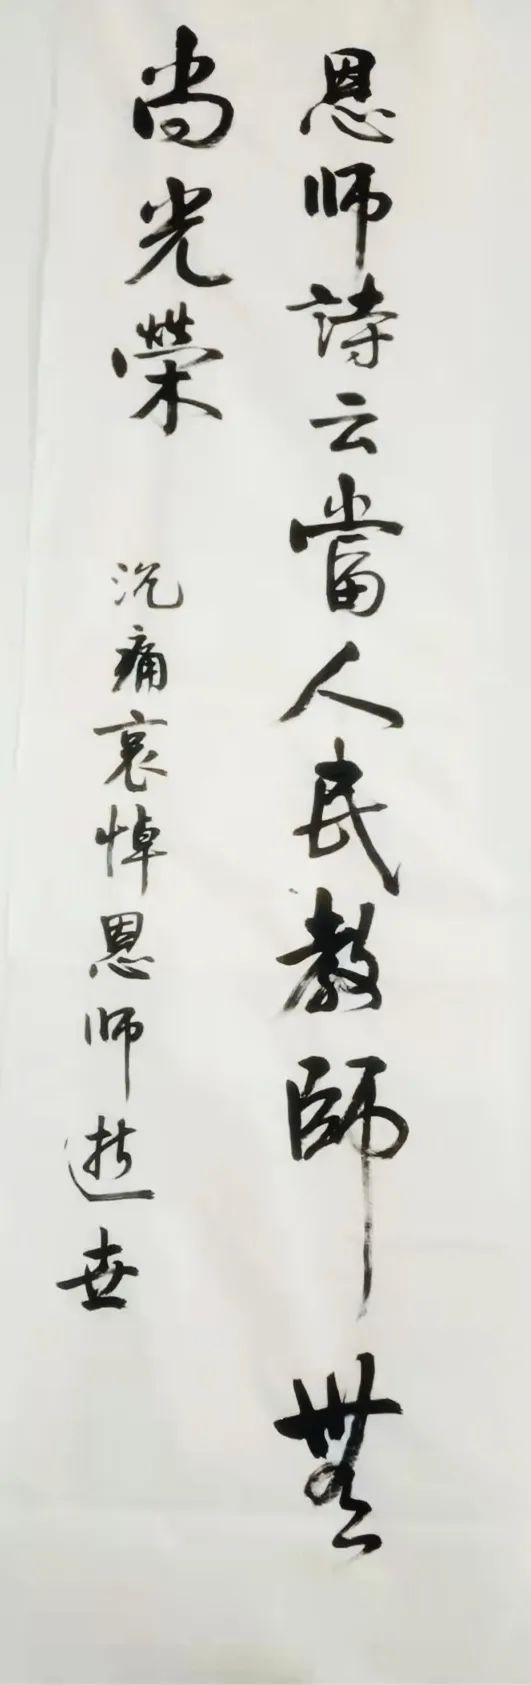 恩师詩云當人民教師無
尚光榮
沉痛哀悼恩师逝世